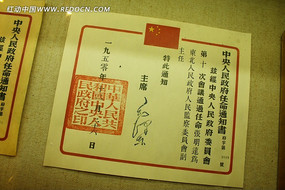 红动中国
中央人民政府任命通知書
茲經中央人民政府委員會
第十次會議通過任命張明遠為
東北人民政府人民監察委員會副
主任
特此通知
主席
毛澤東
一九五〇年
月
日
中華人民共
和國中央人
民政府之印